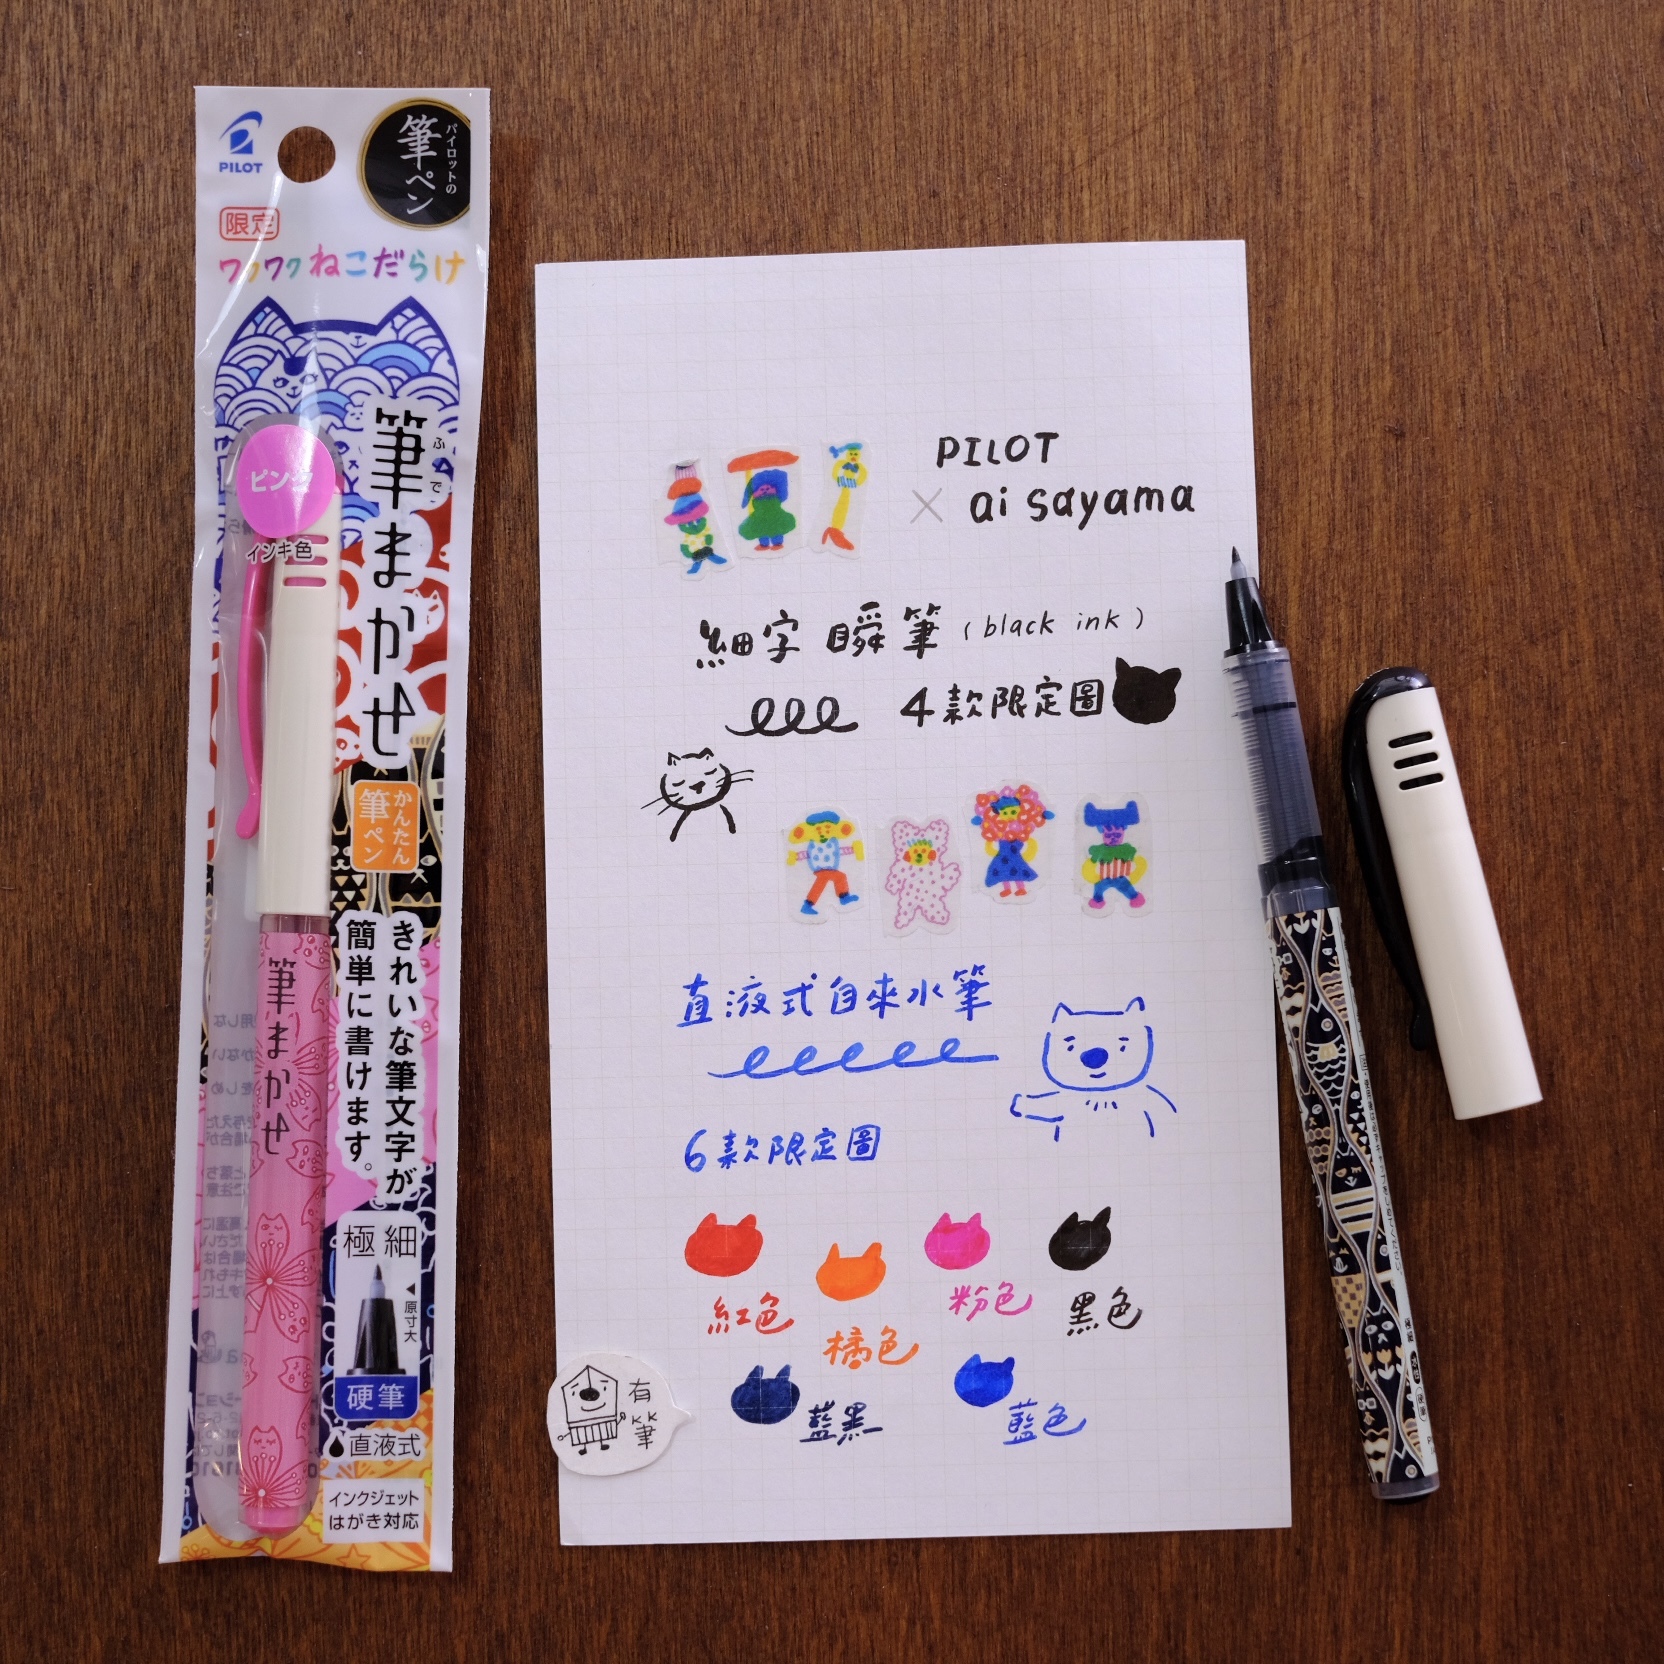 PILOT
パイロットの
筆ペン
限定
ワクワクねこだらけ
ピンク
インキ色
筆まかせ
ふで
かんたん
筆ペン
きれいな筆文字が
簡単に書けます。
筆まかせ
極細
原寸大
硬筆
直液式
インクジェット
はがき対応
PILOT
× ai sayama
細字 瞬筆 (black ink)
4款限定圖
直液式自來水筆
6款限定圖
紅色
橘色
粉色
黑色
藍黑
藍色
有
筆